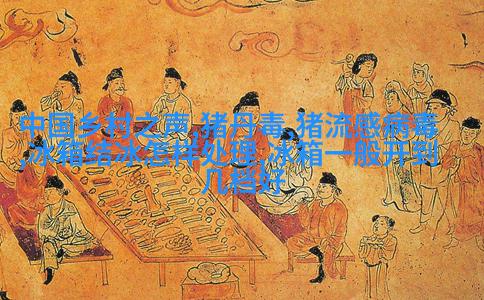 中国乡村之声 猪丹毒 猪流感病毒
,冰箱结冰怎样处理,冰箱一般开到
几档好